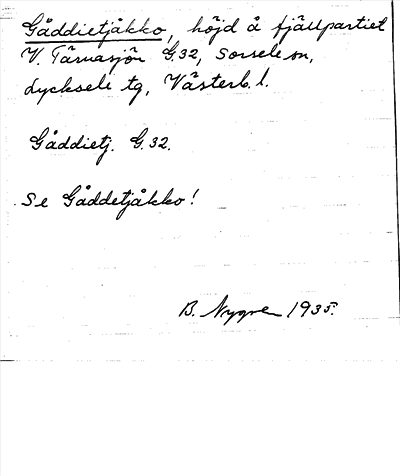 Gåddietjåkko, höjd å fjällpartiet
V. Tärnasjön G.32, Sorsele sn,
Lycksele tg, Västerb. l.
Gåddietj. G.32.
Se Gåddetjåkko!
B. Nygren 1935.